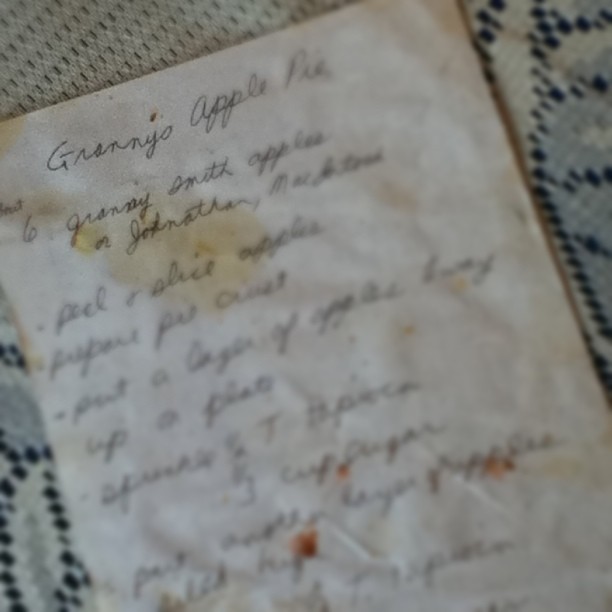 Granny's Apple Pie
6 granny smith apples
or Johnathan, MacIntosh
- peel & slice apples
- prepare pie crust
- put a layer of apples 1/2 way
up a plate
- sprinkle T tapioca
cup sugar
put another layer apples
tapioca